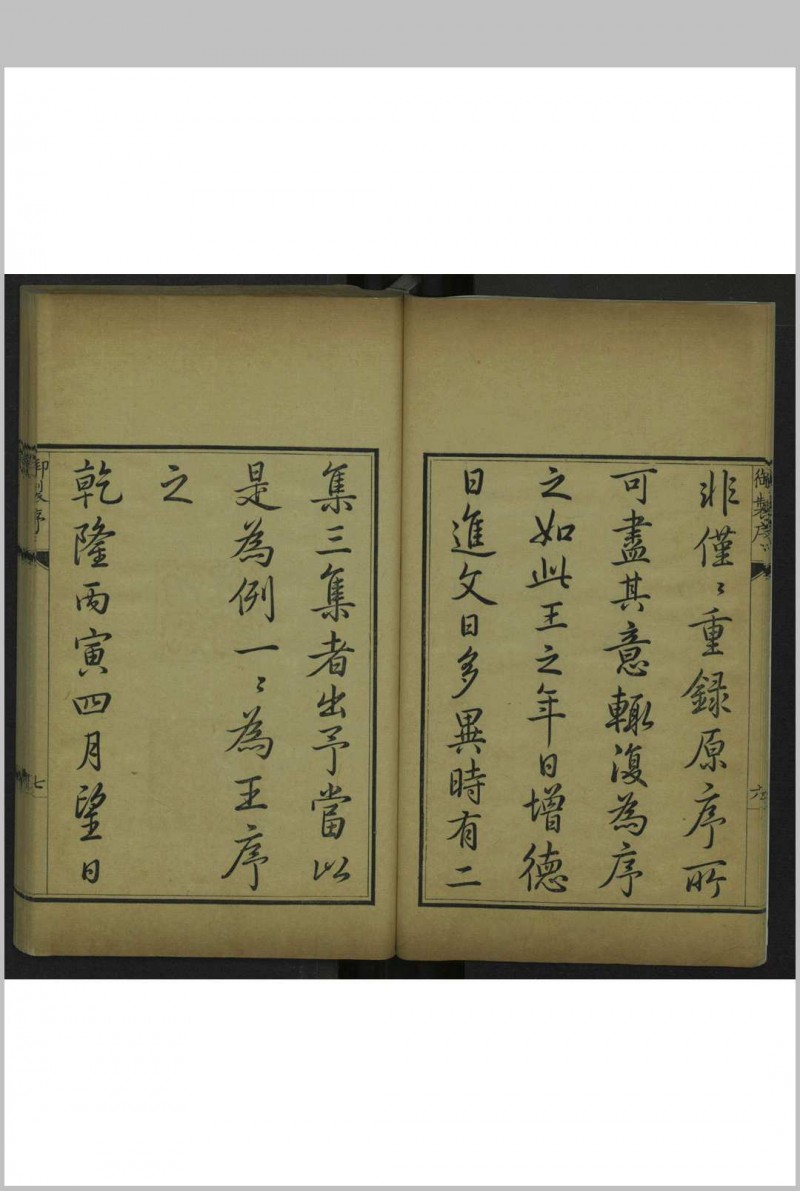 御製序
六
非僅〻重錄原序所
可盡其意輙復為序
之如此王之年日增德
日進文日多異時有二
集三集者出予當以
是為例一〻為王序
之
乾隆丙寅四月望日
御製序
七